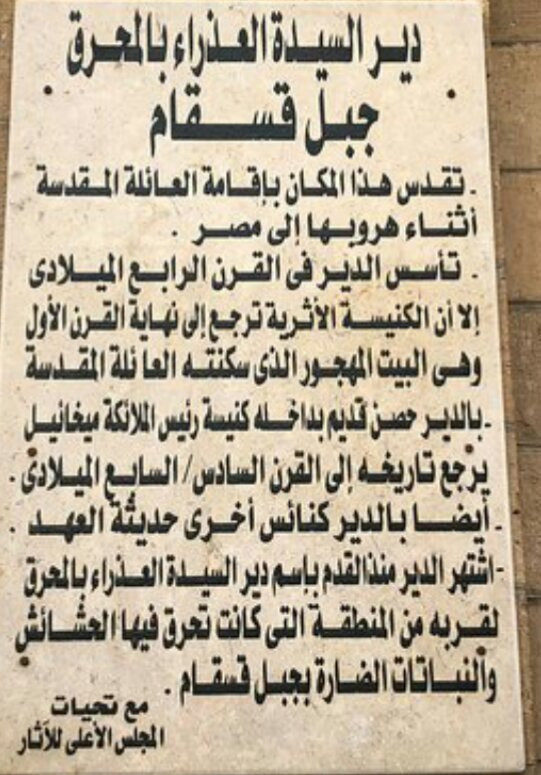 دير السيدة العذراء بالمحرق
جبل قسقام
- تقدس هذا المكان بإقامة العائلة المقدسة
أثناء هروبها إلى مصر .
- تأسس الدير فى القرن الرابع الميلادى
إلا أن الكنيسة الأثرية ترجع إلى نهاية القرن الأول
وهى البيت المهجور الذى سكنته العائلة المقدسة
- بالدير حصن قديم بداخله كنيسة رئيس الملائكة ميخائيل
يرجع تاريخه إلى القرن السادس/ السابع الميلادى .
- أيضا بالدير كنائس أخرى حديثة العهد .
- اشتهر الدير منذ القدم بإسم دير السيدة العذراء بالمحرق
لقربه من المنطقة التى كانت تحرق فيها الحشائش
والنباتات الضارة بجبل قسقام .
مع تحيات
المجلس الأعلى للآثار